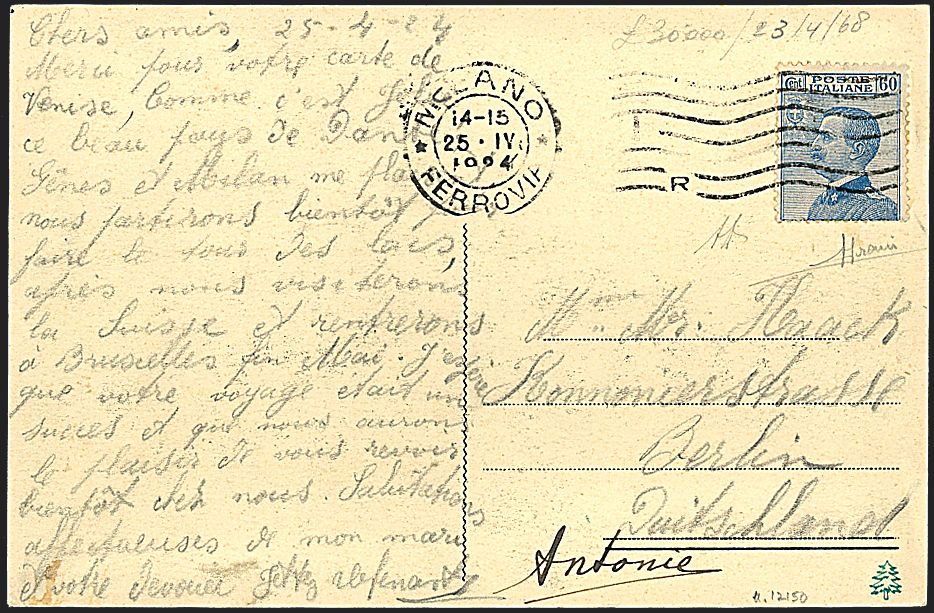 Chers amis, 25-4-24
Merci pour votre carte de
Venise, Comme c'est
ce beau pays de
Gênes et Milan me
nous partirons bientôt
faire le tour des lacs,
après nous visiterons
la Suisse et rentrerons
a Bruxelles fin Mai. J'espère
que votre voyage etait un
succes et que nous aurons
le plaisir de vous revoir
bientôt chez nous. Salutations
affectueuses de mon mari
et votre devouée
£30000/23/4/68
MILANO
14-15
25·IV.
1924
FERROVIE
R
Cent POSTE ITALIANE 60
Mme Mr. Haack
strasse
Berlin
Duitschland
Antonie
12150